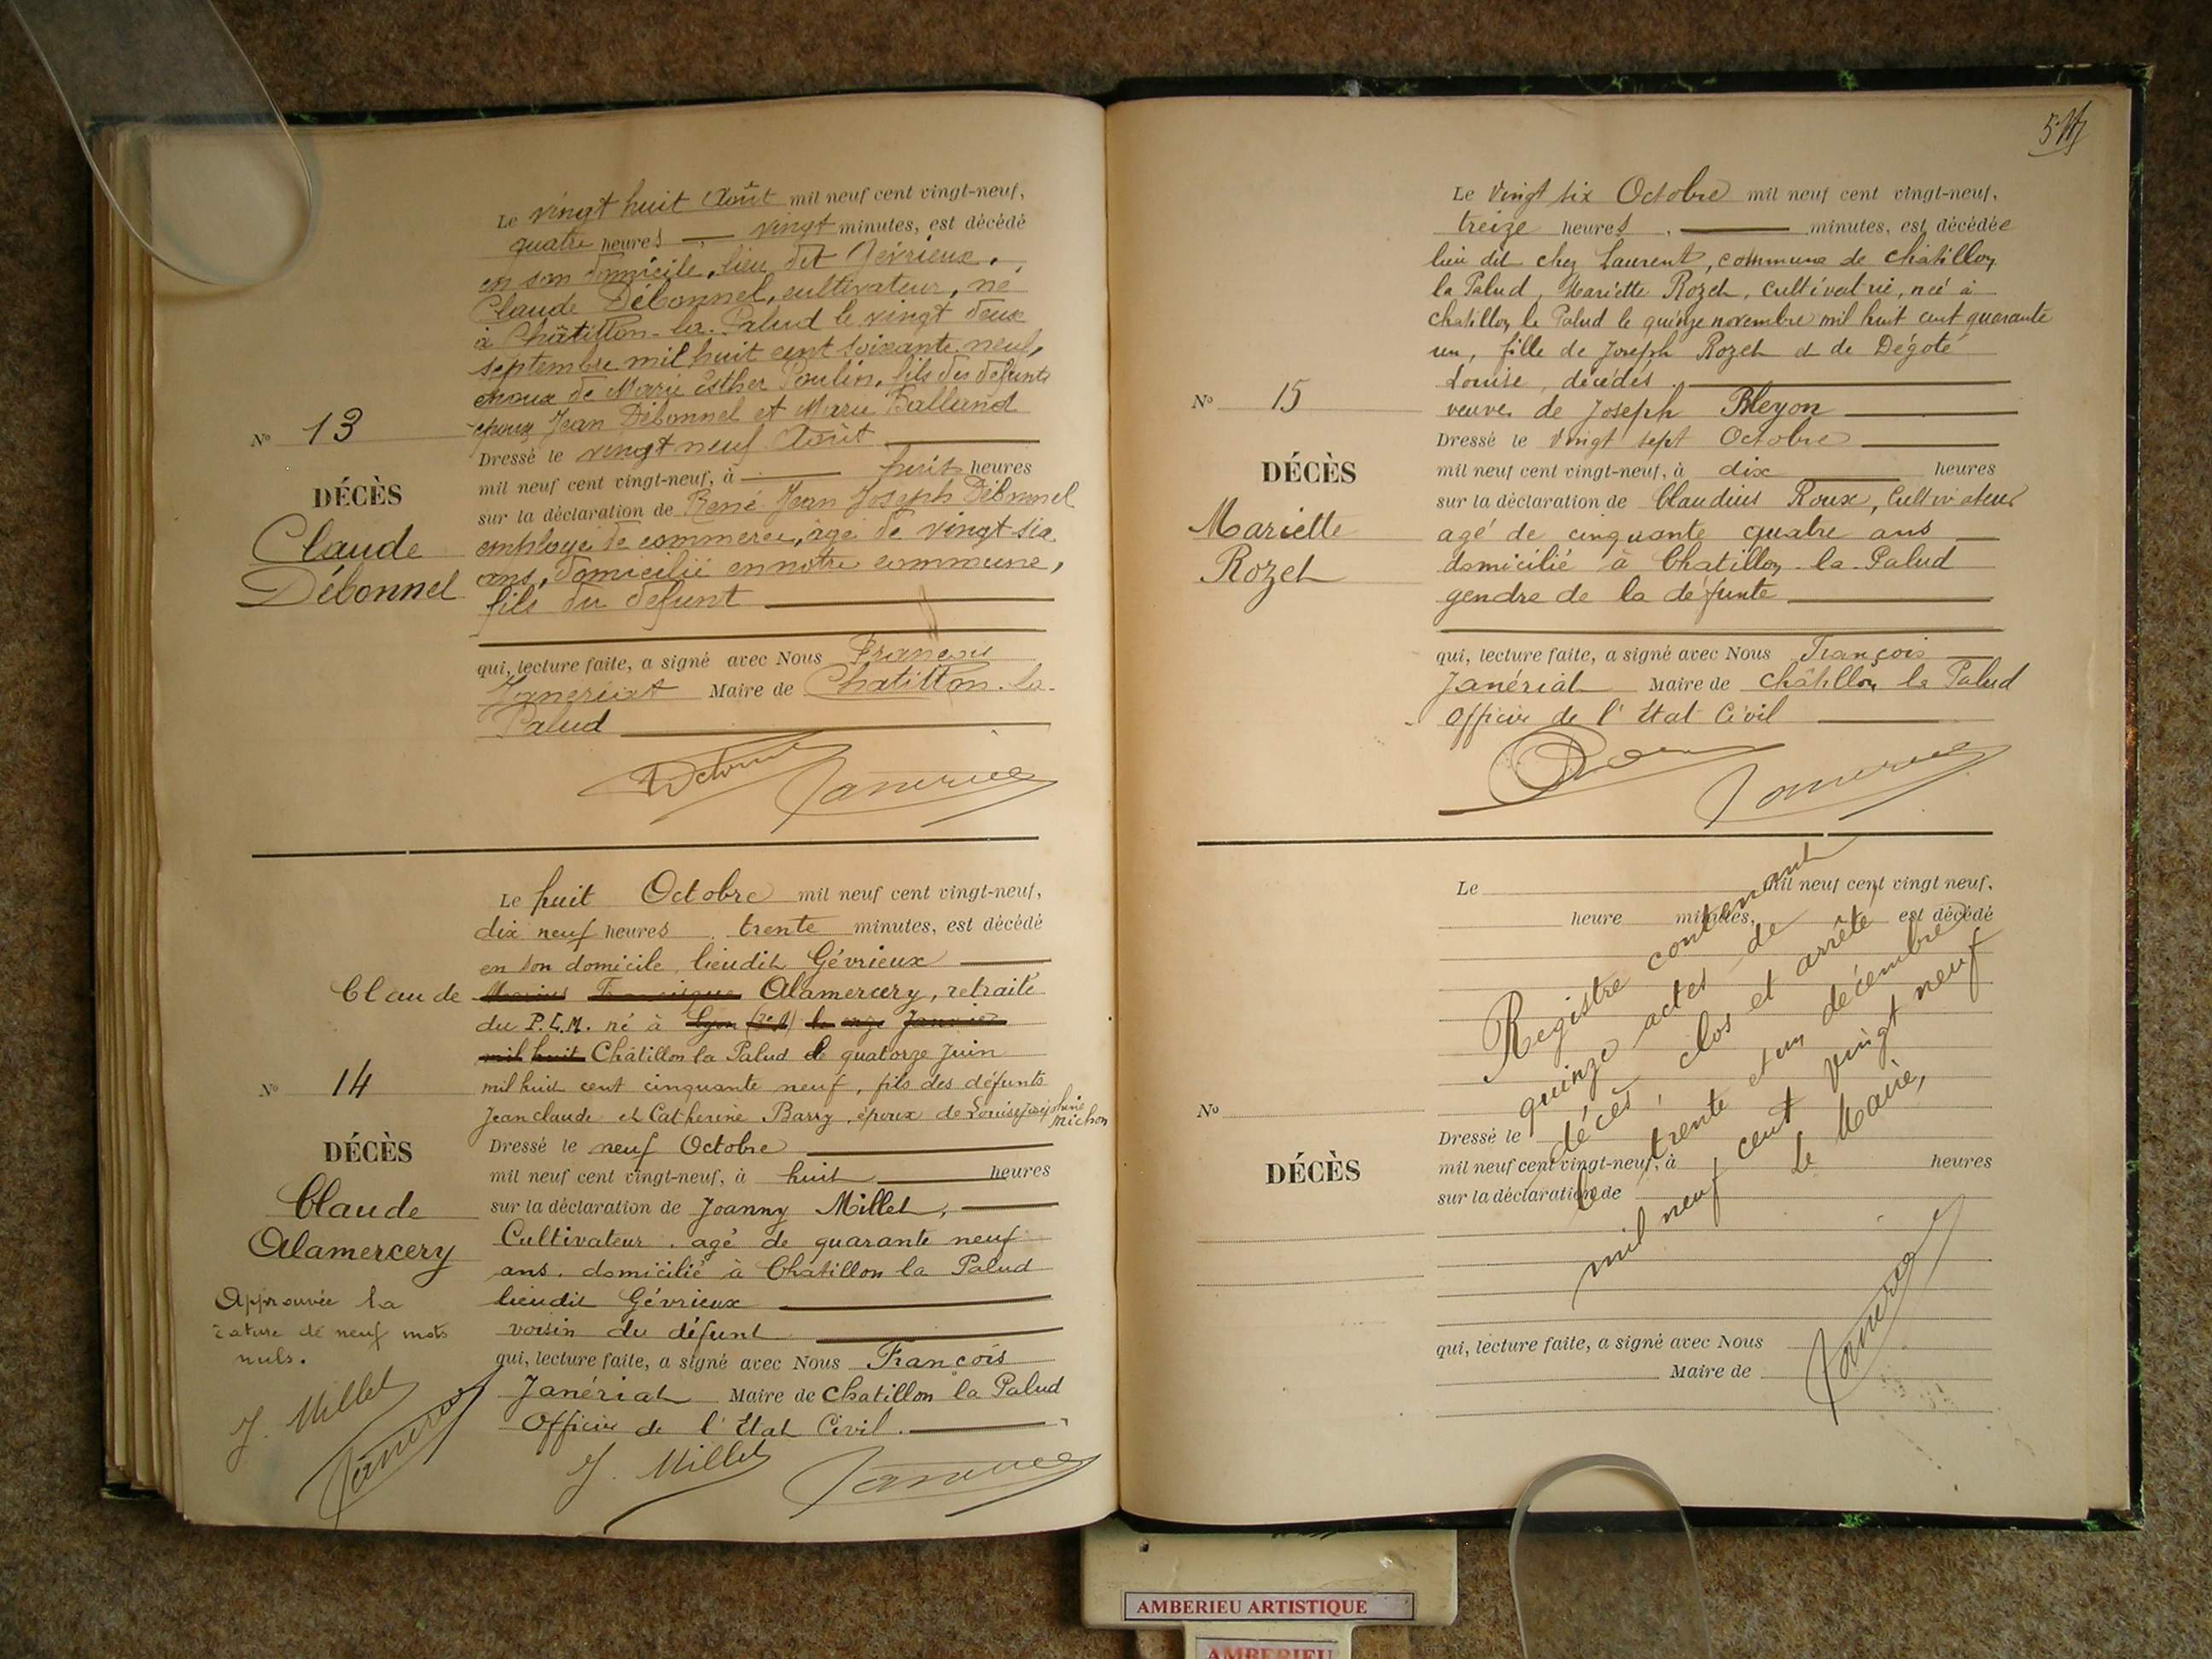 Le vingt huit Août mil neuf cent vingt-neuf,
quatre heures vingt minutes, est décédé
en son domicile, lieu dit Gévrieux,
Claude Débonnel, cultivateur, né
à Châtillon-la-Palud le vingt deux
septembre mil huit cent soixante neuf,
époux de Marie Esther Poulin, fils des défunts
époux Jean Débonnel et Marie Balland
N° 13
Dressé le vingt neuf Août
mil neuf cent vingt-neuf, à huit heures
DÉCÈS
Claude
Débonnel
sur la déclaration de René Jean Joseph Débonnel
employé de commerce, âgé de vingt six
ans, domicilié en notre commune,
fils du défunt
qui, lecture faite, a signé avec Nous François
Janeriat Maire de Chatillon-la-
Palud
Le huit Octobre mil neuf cent vingt-neuf,
dix neuf heures trente minutes, est décédé
en son domicile, lieudit Gévrieux
Claude Marius Alamercery, retraité
du P.L.M. né à Lyon (3e A) le onze Janvier
mil huit Châtillon la Palud le quatorze Juin
mil huit cent cinquante neuf, fils des défunts
Jean claude et Catherine Barry, époux de Louise Joséphine
Michon
N° 14
Dressé le neuf Octobre
mil neuf cent vingt-neuf, à huit heures
DÉCÈS
Claude
Alamercery
sur la déclaration de Joanny Millet,
Cultivateur, agé de quarante neuf
ans, domicilié à Chatillon la Palud
lieudit Gévrieux
voisin du défunt
Approuvée la
rature de neuf mots
nuls.
J. Millet
qui, lecture faite, a signé avec Nous François
Janériat Maire de Chatillon la Palud
Officier de l'Etat Civil.
J. Millet
Le vingt six Octobre mil neuf cent vingt-neuf,
treize heures minutes, est décédée
lieu dit chez Laurent, commune de chatillon
la Palud, Mariette Rozet, cultivatrice, née à
chatillon la Palud le quinze novembre mil huit cent quarante
un, fille de Joseph Rozet et de Dégoté
Louise, décédés.
N° 15
veuve de Joseph Bleyon
Dressé le vingt sept Octobre
DÉCÈS
Mariette
Rozet
mil neuf cent vingt-neuf, à dix heures
sur la déclaration de Claudius Roux, Cultivateur
agé de cinquante quatre ans
domicilié à Chatillon-la-Palud
gendre de la défunte
qui, lecture faite, a signé avec Nous François
Janériat Maire de châtillon la Palud
Officier de l'Etat Civil
Le mil neuf cent vingt neuf,
heure minutes, est décédé
N°
Dressé le
mil neuf cent vingt-neuf, à heures
DÉCÈS
sur la déclaration de
qui, lecture faite, a signé avec Nous
Maire de
Registre contenant
quinze actes de
décès, clos et arrêté,
le trente et un décembre
mil neuf cent vingt neuf
Le Maire,
AMBERIEU ARTISTIQUE
AMBERIEU